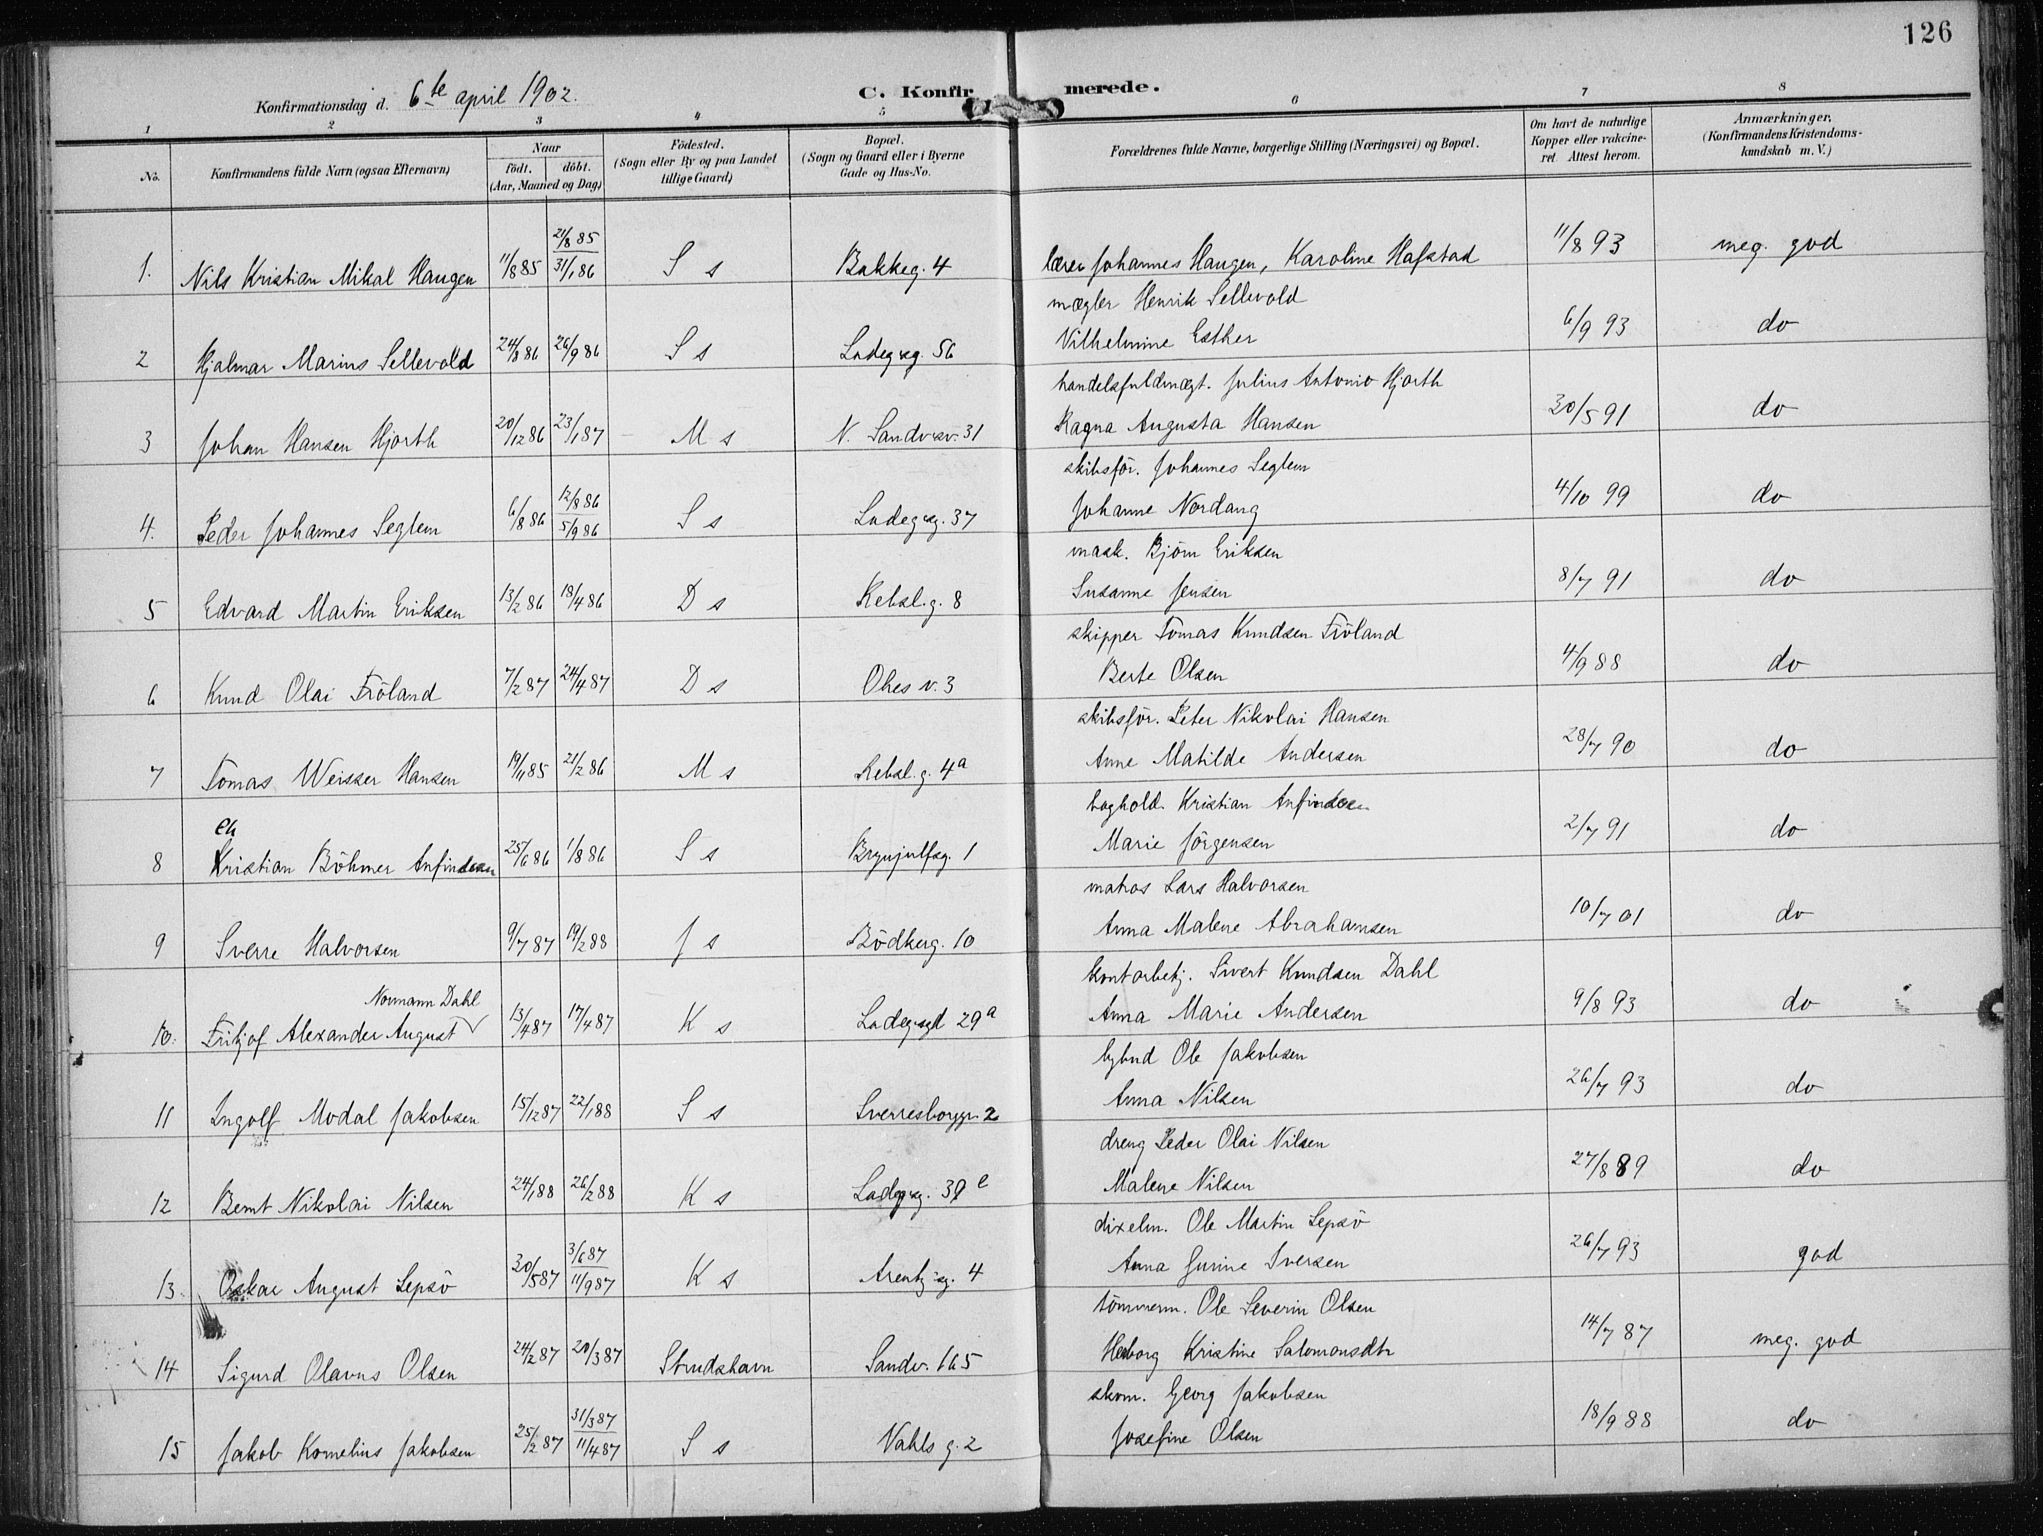 126
Konfirmationsdag d. 6te april 1902.
C. Konfirmerede.
1 2 3 4 5 6 7 8
No. Konfirmandens fulde Navn (ogsaa Efternavn) Naar födt. döbt. (Aar, Maaned og Dag) Födested. (Sogn eller By og paa Landet tillige Gaard) Bopæl. (Sogn og Gaard eller i Byerne Gade og Hus-No. Forældrenes fulde Navne, borgerlige Stilling (Næringsvei) og Bopæl. Om havt de naturlige Kopper eller vakcineret Attest herom. Anmærkninger. (Konfirmandens Kristendomskundskab m. V.)
1. Nils Kristian Mikal Haugen 11/8 85 21/8 85 31/1 86 S s Bakkeg. 4 lærer Johannes Haugen, Karoline Hafstad 11/8 93 meg. god
mægler Henrik Sellevold
2 Hjalmar Marius Sellevold 24/8 86 26/9 86 S s Ladeg.sg. 56 Vilhelmine Esther 6/9 93 do
handelsfuldmægt. Julius Antonio Hjorth
3 Johan Hansen Hjorth 20/12 86 23/1 87 M s N. Sandvsv. 31 Ragna Augusta Hansen 30/5 91 do
skibsför. Johannes Seglem
4. Peder Johannes Seglem 6/8 86 12/8 86 5/9 86 S s Ladeg.sg. 37 Johanne Nordang 4/10 99 do
mask. Björn Eriksen
5 Edvard Martin Eriksen 13/2 86 18/4 86 D s Rebsl.g. 8 Susanne Jensen 8/7 91 do
skipper Tomas Knudsen Fröland
6 Knud Olai Fröland 7/2 87 24/4 87 D s Ohes v. 3 Berte Olsen 4/9 88 do
skibsför. Peter Nikolai Hansen
7 Tomas Weisser Hansen 19/11 85 21/2 86 M s Rebsl.g. 4a Anne Matilde Andersen 28/7 90 do
boghold. Kristian Anfindsen
Ch
8 Kristian Böhmer Anfindsen 25/6 86 1/8 86 S s Brynjulfsg. 1 Marie Jörgensen 2/7 91 do
matros Lars Halvorsen
9 Sverre Halvorsen 9/7 87 19/2 88 J s Bödkerg. 10 Anna Malene Abrahamsen 10/7 01 do
kontorbetj. Sivert Knudsen Dahl
Normann Dahl
10. Fritjof Alexander August √ 13/4 87 17/4 87 K s Ladeg.sgd 29a Anna Marie Andersen 9/8 93 do
bybud Ole Jakobsen
11 Ingolf Modal Jakobsen 15/12 87 22/1 88 S s Sverresborggr. 2 Anna Nilsen 26/7 93 do
dreng Peder Olai Nilsen
12 Bernt Nikolai Nilsen 24/1 88 26/2 88 K s Ladeg.sg. 39 e Malene Nilsen 27/8 89 do
dixelm. Ole Martin Lepsö
13. Oskar August Lepsö 30/5 87 3/6 87 11/9 87 K s Arentz'sg. 4 Anna Gurine Iversen 26/7 93 god
tömmerm. Ole Severin Olsen
14 Sigurd Olavus Olsen 24/2 87 20/3 87 Strudshavn Sandv. 165 Herborg Kristine Salomonsdtr 14/7 87 meg. god
skom. Georg Jakobsen
15 Jakob Kornelius Jakobsen 25/2 87 31/3 87 11/4 87 S s Vahls g. 2 Josefine Olsen 18/9 88 do